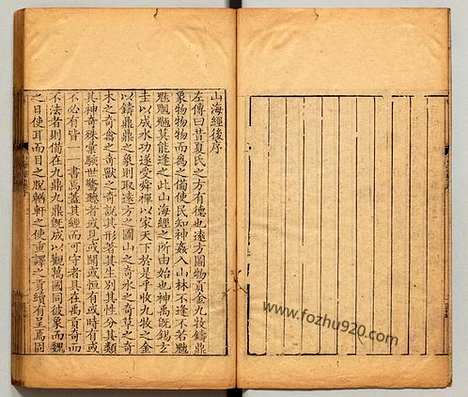 山海經後序
左傳曰昔夏氏之方有德也遠方圖物貢金九牧鑄鼎
象物物物而為之備使民知神姦入山林不逢不若魑
魅魍魎莫能逢之此山海經之所由始也神禹既錫玄
圭以成水功遂受舜禪以家天下於是乎收九牧之金
以鑄鼎鼎之象則取遠方之圖山之奇水之奇草之奇
木之奇禽之奇獸之奇說其形著其生別其性分其類
其神奇殊彙駭世驚聽者或見或聞或恒有或時有或
不必有皆一一書焉蓋其經而可守者具在禹貢奇而
不法者則備在九鼎九鼎既成以觀萬國同彼象而魏
之日使耳而目之脫輶軒之使重譯之貢續有呈焉固
www.fozhu920.com